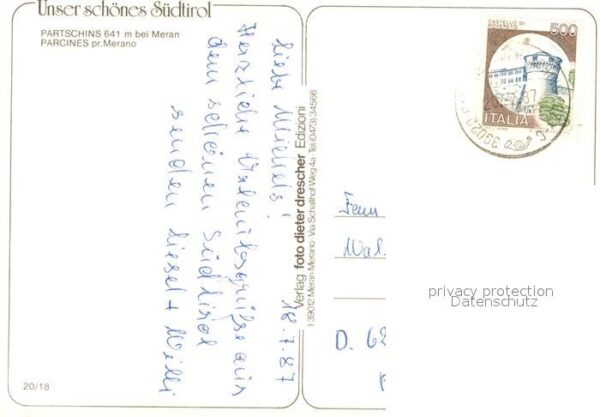 Unser schönes Südtirol
PARTSCHINS 641 m bei Meran
PARCINES pr. Merano
liebe Michels!
18.7.87
Herzliche Urlaubsgrüße aus
dem schönen Südtirol
senden Liesel + Willi
20/18
Verlag foto dieter drescher Edizioni
I-39012 Meran Merano · Via Schallhof-Weg 4a · Tel. (0473) 34566
CASTELLO DI
ROVERETO
500
ITALIA
39020
Fam
Wal
D. 62
privacy protection
Datenschutz